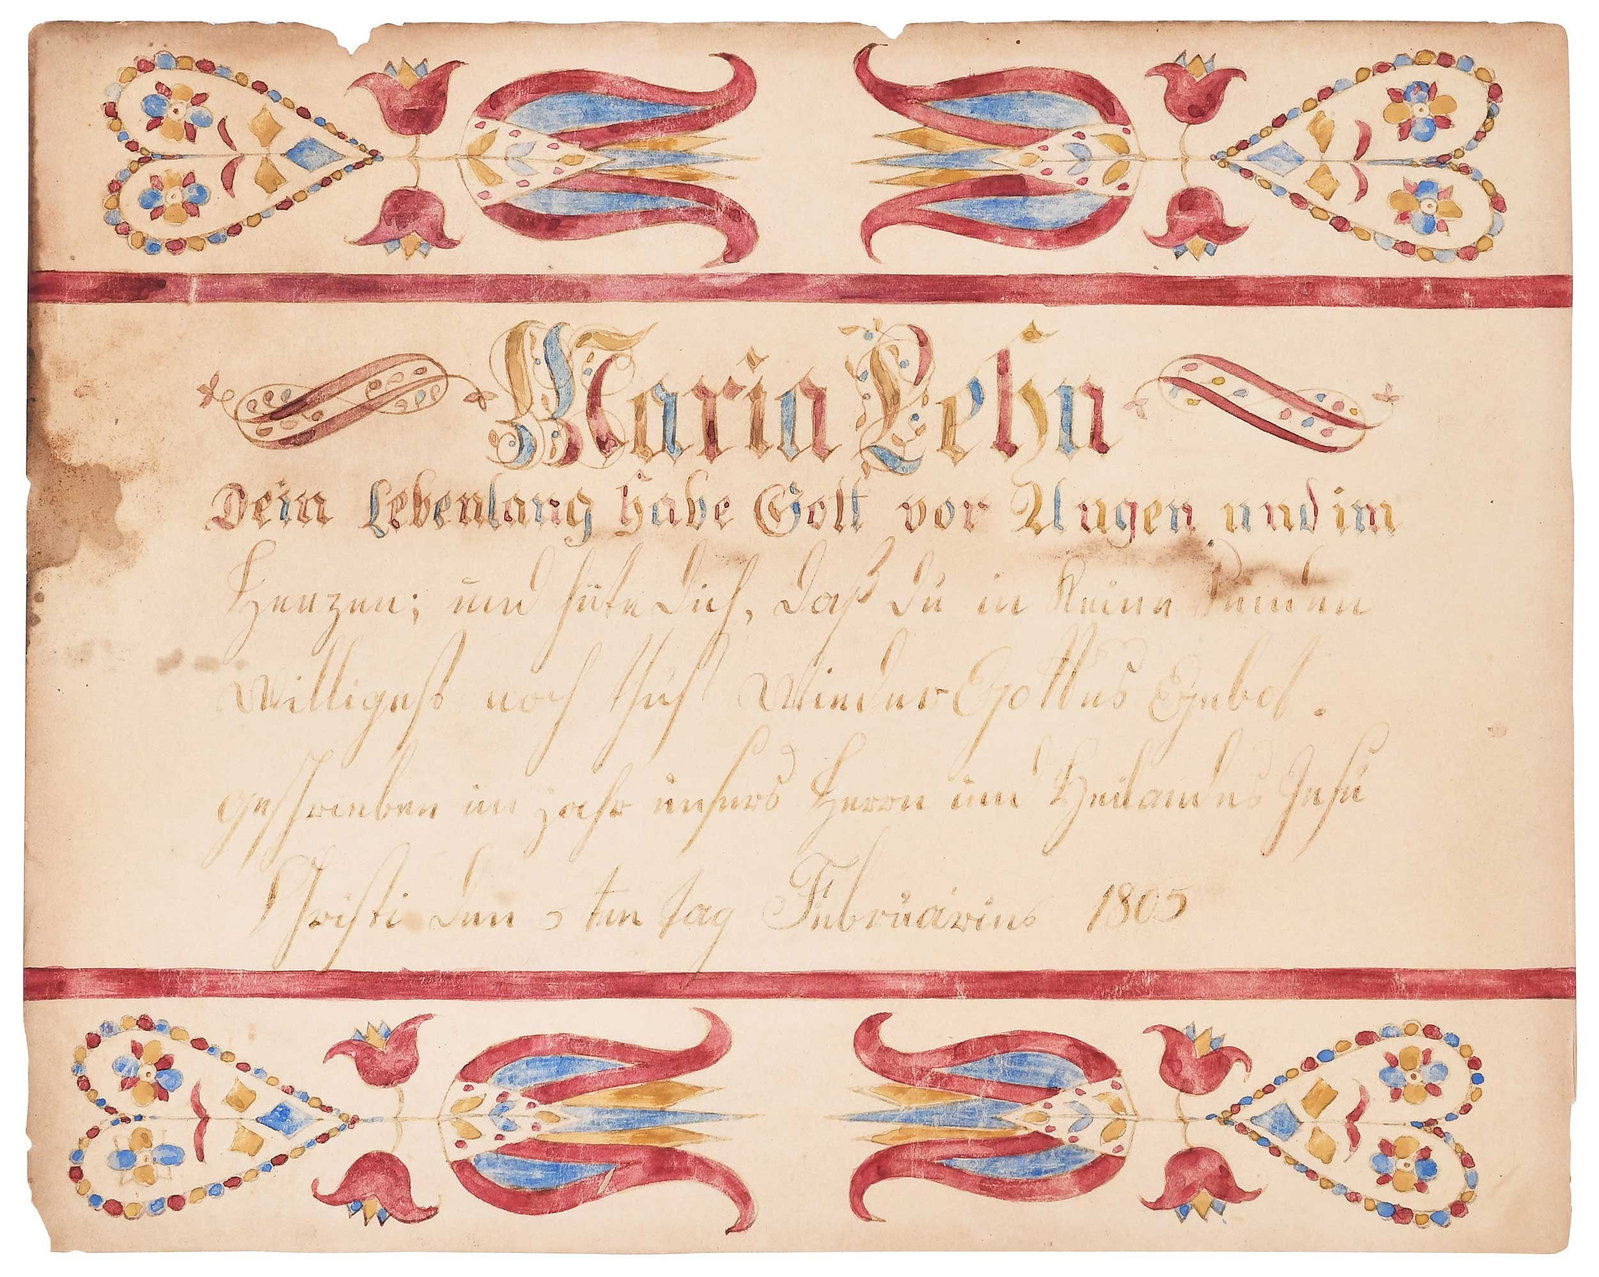 Maria Lehn
Dein Lebenlang habe Gott vor Augen und im
Herzen; und hüte dich, daß du in keine Sünden
willigest noch thust wieder Gottes Gebot.
geschrieben im jahr unsers Herrn und Heilandes Jesu
Christi den 5ten tag Februarius 1805